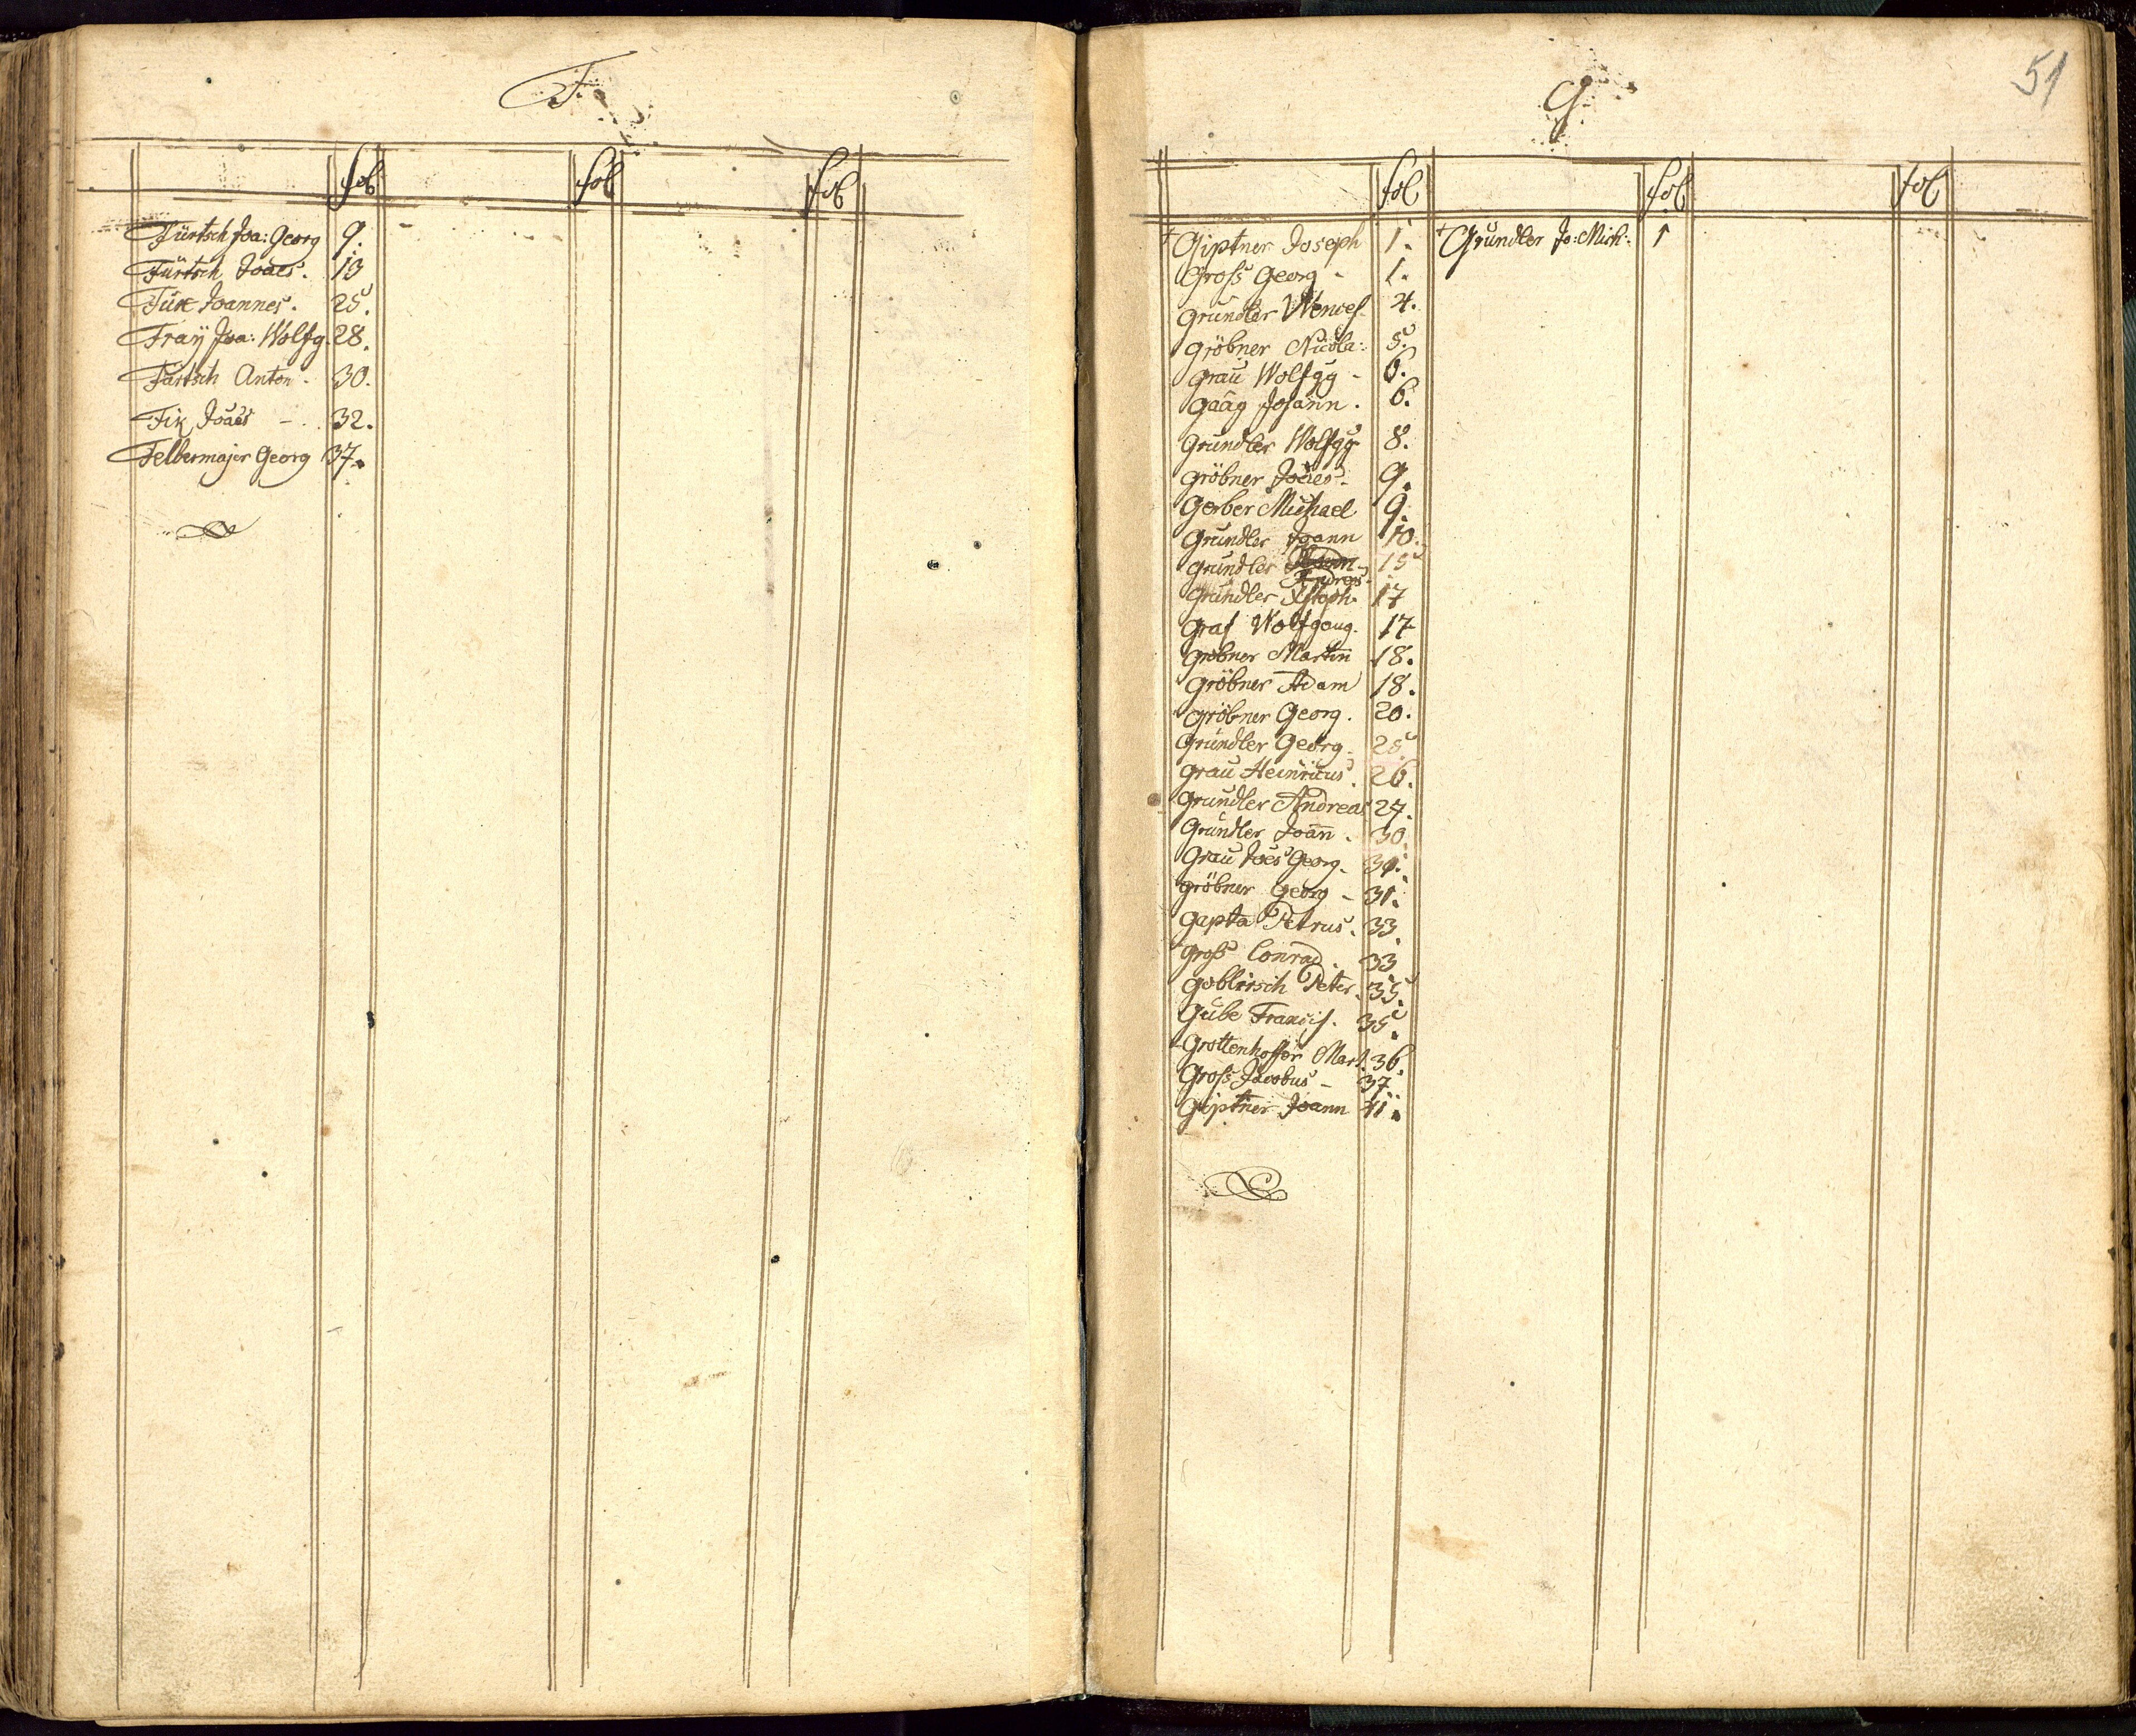 F.
fol
fol
fol
Fürtsch Joa: Georg 9.
Fürtsch Joaēs. 13
Fux Joannes. 25.
Fraÿ Joa: Wolfg. 28.
Fürtsch Anton. 30.
Fix Joaēs - . 32.
Felbermajer Georg 37.
G.
51
fol
fol
fol
+ Giptner Joseph 1.
Groß Georg - 1.
Gründler Wencel 4.
Gröbner Nicola: 5.
Grau Wolfgg - 6.
Gaag Johann. 6.
Gründler Wolfgg 8.
Gröbner Joaēs - 9.
Gerber Michael 9.
Gründler Joann 10.
Gründler Andreas - 15
Gründler Xstoph. 17
Graf Wolfgang. 17
Gröbner Martin 18.
Gröbner Adam 18.
Gröbner Georg. 20.
Gründler Georg - 25.
Grau Heinricus. 26.
Gründler Andreas 27.
Gründler Joan̄. 30.
Grau Joēs Georg - 30.
Gröbner Georg - 31.
Gapta Petrus. 33.
Groß Conrad. 33
Goblirsch Peter. 35.
Gübe Francis. 35.
Grottenhoffer Mart. 36.
Groß Jacobus - 37.
Giptner Joann 41.
+ Gründler Jo: Mich: 1